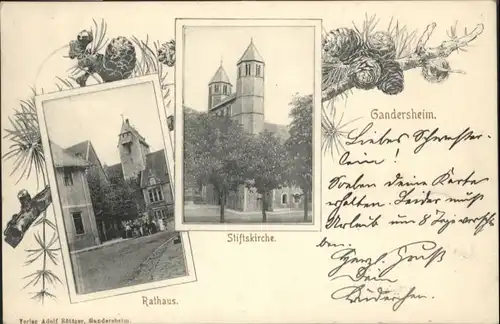 Gandersheim.
Liebes Schwester-
lein!
Soeben Deine Karte
erhalten. Leider muß
Urlaub um 8 Tage verschie-
ben.
Herzl. Gruß
Dein
Brüderchen.
Stiftskirche.
Rathaus.
Verlag Adolf Röttger, Gandersheim.